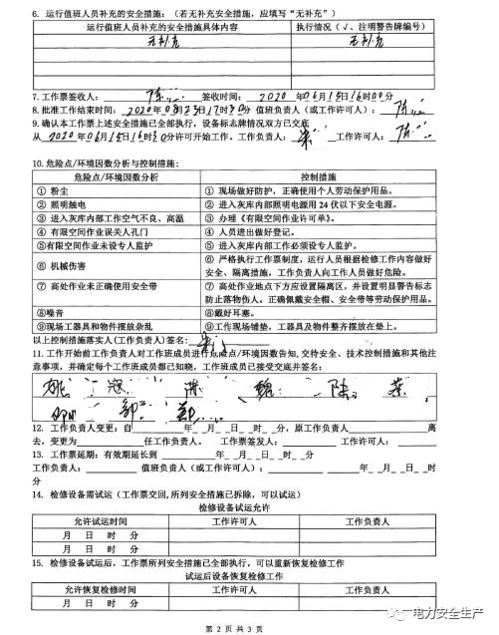 6. 运行值班人员补充的安全措施:（若无补充安全措施，应填写“无补充”）
运行值班人员补充的安全措施具体内容 执行情况（√、注明警告牌编号）
无补充 无补充
7.工作票签收人: 陈 签收时间: 2020年06月15日16时00分
8.批准工作结束时间: 2020年08月23日17时30分 值班负责人（或工作许可人）: 陈
9.确认本工作票上述安全措施已全部执行，设备标志牌情况双方已交底
从2020年06月15日16时30分许可开始工作。工作负责人: 工作许可人: 陈
10.危险点/环境因数分析与控制措施:
危险点/环境因数分析 控制措施
① 粉尘 ① 现场做好防护，正确使用个人劳动保护用品。
② 照明触电 ② 进入灰库内部照明电源用24伏以下安全电源。
③ 进入灰库内部工作空气不良、高温 ③ 办理《有限空间作业许可单》。
④ 有限空间作业误关人孔门 ④ 人员进出做好登记。
⑤有限空间作业未设专人监护 ⑤ 进入灰库内部工作必须设专人监护。
⑥ 机械伤害 ⑥ 严格执行工作票制度，运行人员根据检修工作内容做好
安全、隔离措施，工作负责人向工作人员做好危险。
⑦ 高处作业未正确使用安全带 ⑦ 高处作业地点下方应设置隔离区，并设置明显警告标志
防止落物伤人，正确佩戴安全帽、安全带等劳动保护用品。
⑧噪音 ⑧戴好耳塞。
⑨现场工器具和物件摆放杂乱 ⑨工作现场铺垫，工器具及物件整齐摆放在垫上。
以上控制措施落实人(工作负责人)签名:
11.工作开始前工作负责人对工作班成员进行危险点/环境因数告知,交待安全、技术控制措施和其他注
意事项，并确定每个工作班成员都已知晓，工作班成员已接受交底并签名:
姚 冠 魏 陆 蔡
邵 郭
12. 工作负责人变更:自 年 月 日 时 分，原工作负责人 离
去，变更为 任工作负责人。 工作票签发人: 工作许可人:
13. 工作票延期: 有效期延长到 年 月 日 时 分
工作负责人: 值班负责人（或工作许可人）: 年 月 日 时
分
14. 检修设备需试运（工作票交回,所列安全措施已拆除，可以试运）
检修设备试运允许
允许试运时间 工作许可人 工作负责人
月 日 时 分
月 日 时 分
15. 检修设备试运后，工作票所列安全措施已全部执行，可以重新恢复检修工作
试运后设备恢复检修工作
允许恢复检修时间 工作许可人 工作负责人
月 日 时 分
第 2 页 共 3 页
电力安全生产